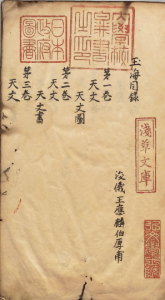 大學校
圖書
之印
日本
政府
圖書
淺草文庫
玉海目録
浚儀王應麟伯厚甫
第一卷
天文
天文圖
第二卷
天文
天文書
第三卷
天文